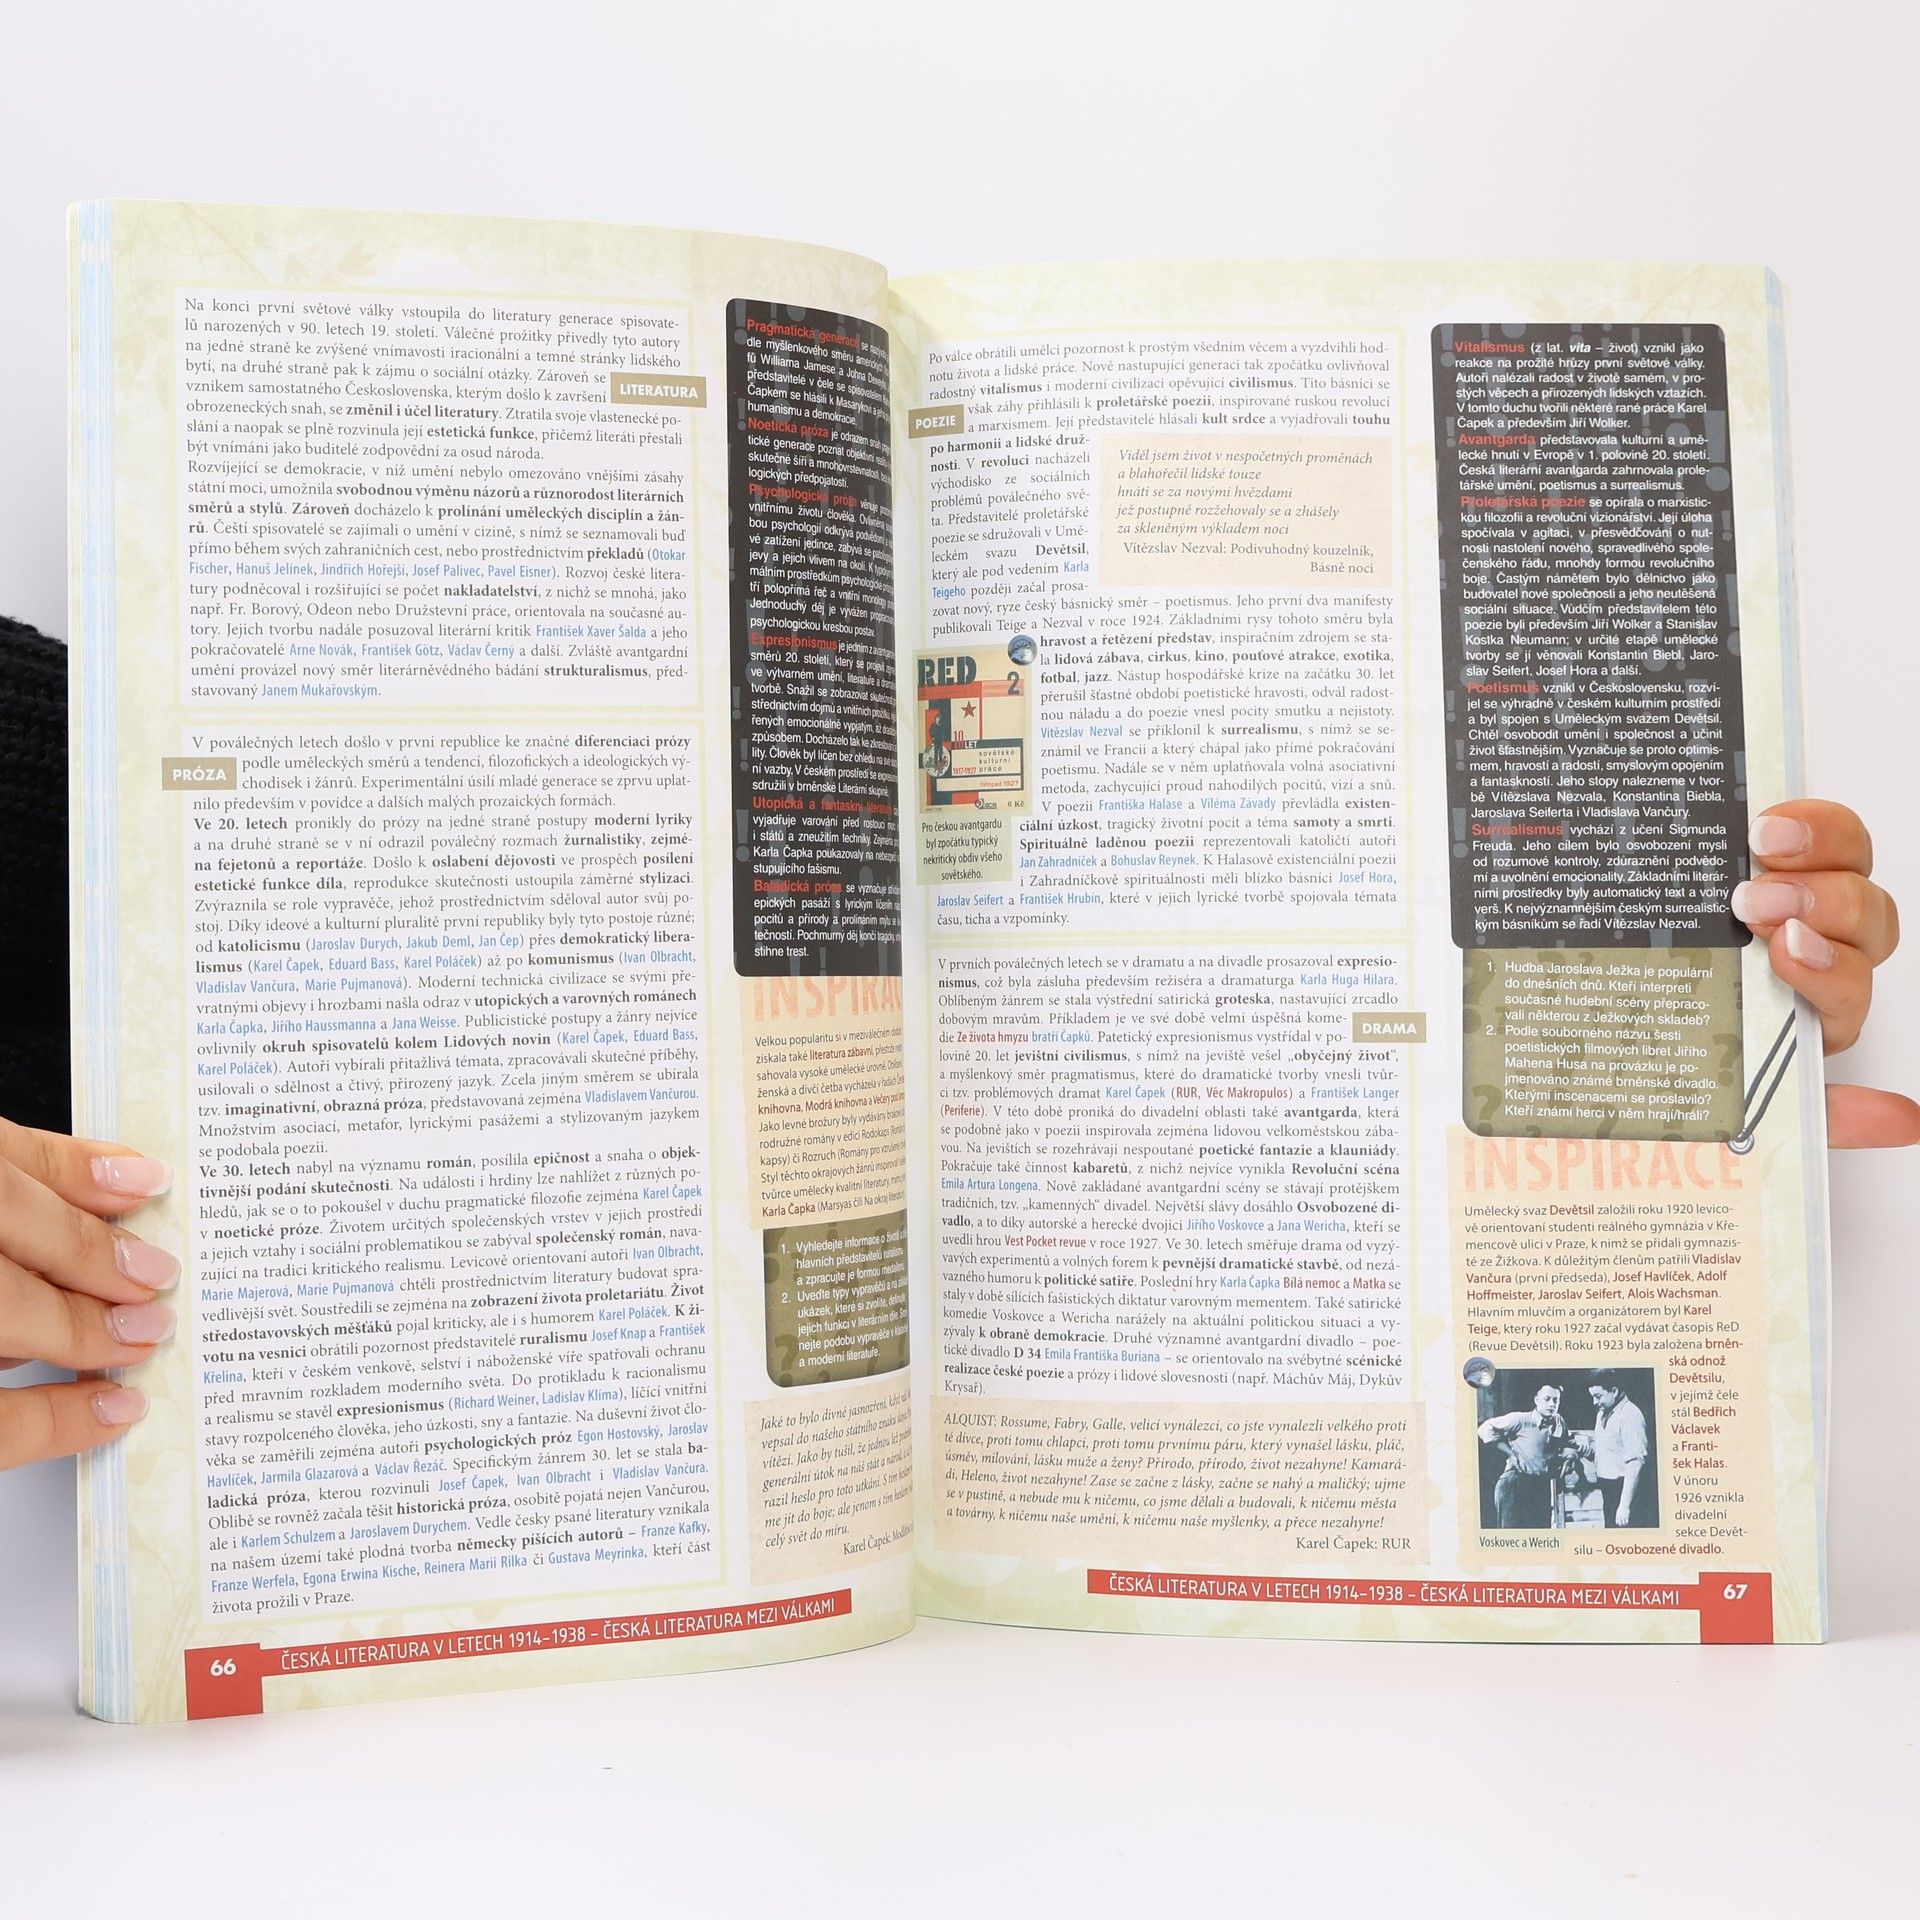 Na konci první světové války vstoupila do literatury generace spisovate-
lů narozených v 90. letech 19. století. Válečné prožitky přivedly tyto autory
na jedné straně ke zvýšené vnímavosti iracionální a temné stránky lidského
bytí, na druhé straně pak k zájmu o sociální otázky. Zároveň se
vznikem samostatného Československa, kterým došlo k završení
obrozeneckých snah, se změnil i účel literatury. Ztratila svoje vlastenecké po-
slání a naopak se plně rozvinula její estetická funkce, přičemž literáti přestali
být vnímáni jako buditelé zodpovědní za osud národa.
Rozvíjející se demokracie, v níž umění nebylo omezováno vnějšími zásahy
státní moci, umožnila svobodnou výměnu názorů a různorodost literárních
směrů a stylů. Zároveň docházelo k prolínání uměleckých disciplín a žán-
rů. Čeští spisovatelé se zajímali o umění v cizině, s nímž se seznamovali buď
přímo během svých zahraničních cest, nebo prostřednictvím překladů (Otokar
Fischer, Hanuš Jelínek, Jindřich Hořejší, Josef Palivec, Pavel Eisner). Rozvoj české litera-
tury podněcoval i rozšiřující se počet nakladatelství, z nichž se mnohá, jako
např. Fr. Borový, Odeon nebo Družstevní práce, orientovala na současné au-
tory. Jejich tvorbu nadále posuzoval literární kritik František Xaver Šalda a jeho
pokračovatelé Arne Novák, František Götz, Václav Černý a další. Zvláště avantgardní
umění provázel nový směr literárněvědného bádání strukturalismus, před-
stavovaný Janem Mukařovským.
LITERATURA
PRÓZA
V poválečných letech došlo v první republice ke značné diferenciaci prózy
podle uměleckých směrů a tendencí, filozofických a ideologických vý-
chodisek i žánrů. Experimentální úsilí mladé generace se zprvu uplat-
nilo především v povídce a dalších malých prozaických formách.
Ve 20. letech pronikly do prózy na jedné straně postupy moderní lyriky
a na druhé straně se v ní odrazil poválečný rozmach žurnalistiky, zejmé-
na fejetonů a reportáže. Došlo k oslabení dějovosti ve prospěch posílení
estetické funkce díla, reprodukce skutečnosti ustoupila záměrné stylizaci.
Zvýraznila se role vypravěče, jehož prostřednictvím sděloval autor svůj po-
stoj. Díky ideové a kulturní pluralitě první republiky byly tyto postoje různé;
od katolicismu (Jaroslav Durych, Jakub Deml, Jan Čep) přes demokratický libera-
lismus (Karel Čapek, Eduard Bass, Karel Poláček) až po komunismus (Ivan Olbracht,
Vladislav Vančura, Marie Pujmanová). Moderní technická civilizace se svými pře-
vratnými objevy i hrozbami našla odraz v utopických a varovných románech
Karla Čapka, Jiřího Haussmanna a Jana Weisse. Publicistické postupy a žánry nejvíce
ovlivnily okruh spisovatelů kolem Lidových novin (Karel Čapek, Eduard Bass,
Karel Poláček). Autoři vybírali přitažlivá témata, zpracovávali skutečné příběhy,
usilovali o sdělnost a čtivý, přirozený jazyk. Zcela jiným směrem se ubírala
tzv. imaginativní, obrazná próza, představovaná zejména Vladislavem Vančurou.
Množstvím asociací, metafor, lyrickými pasážemi a stylizovaným jazykem
se podobala poezii.
Ve 30. letech nabyl na významu román, posílila epičnost a snaha o objek-
tivnější podání skutečnosti. Na události i hrdiny lze nahlížet z různých po-
hledů, jak se o to pokoušel v duchu pragmatické filozofie zejména Karel Čapek
v noetické próze. Životem určitých společenských vrstev v jejich prostředí
a jejich vztahy i sociální problematikou se zabýval společenský román, nava-
zující na tradici kritického realismu. Levicově orientovaní autoři Ivan Olbracht,
Marie Majerová, Marie Pujmanová chtěli prostřednictvím literatury budovat spra-
vedlivější svět. Soustředili se zejména na zobrazení života proletariátu. Život
středostavovských měšťáků pojal kriticky, ale i s humorem Karel Poláček. K ži-
votu na vesnici obrátili pozornost představitelé ruralismu Josef Knap a František
Křelina, kteří v českém venkově, selství i náboženské víře spatřovali ochranu
před mravním rozkladem moderního světa. Do protikladu k racionalismu
a realismu se stavěl expresionismus (Richard Weiner, Ladislav Klíma), líčící vnitřní
stavy rozpolceného člověka, jeho úzkosti, sny a fantazie. Na duševní život člo-
věka se zaměřili zejména autoři psychologických próz Egon Hostovský, Jaroslav
Havlíček, Jarmila Glazarová a Václav Řezáč. Specifickým žánrem 30. let se stala ba-
ladická próza, kterou rozvinuli Josef Čapek, Ivan Olbracht i Vladislav Vančura.
Oblibě se rovněž začala těšit historická próza, osobitě pojatá nejen Vančurou,
ale i Karlem Schulzem a Jaroslavem Durychem. Vedle česky psané literatury vznikala
na našem území také plodná tvorba německy píšících autorů – Franze Kafky,
Franze Werfela, Egona Erwina Kische, Reinera Marii Rilka či Gustava Meyrinka, kteří část
života prožili v Praze.
Pragmatická generace se
dle myšlenkového směru amerických
fů Williama Jamese a Johna
představitelé v čele se spisovatelem
Čapkem se hlásili k Masarykovi a
humanismu a demokracie.
Noetická próza je odrazem snah
tické generace poznat objektivní
skutečné šíři a mnohovrstevnatosti,
logických předpojatostí.
Psychologická próza věnuje
vnitřnímu životu člověka.
bou psychologií odkrývá podvědomí
vé zatížení jedince, zabývá se
jevy a jejich vlivem na okolí. K
málním prostředkům psychologické
tří polopřímá řeč a vnitřní monology
Jednoduchý děj je vyvážen
psychologickou kresbou postav.
Expresionismus je jedním z
směrů 20. století, který se projevil
ve výtvarném umění, literatuře a
tvorbě. Snažil se zobrazovat
střednictvím dojmů a vnitřních
řených emocionálně vypjatým, až
způsobem. Docházelo tak ke
lity. Člověk byl líčen bez ohledu na
ní vazby. V českém prostředí se
sdružili v brněnské Literární skupině.
Utopická a fantaskní literatura
vyjadřuje varování před rostoucí
i států a zneužitím techniky. Zejména
Karla Čapka poukazovaly na nebezpečí
stupujícího fašismu.
Baladická próza se vyznačuje
epických pasáží s lyrickým líčením
pocitů a přírody a prolínáním mýtu se
tečností. Pochmurný děj končí tragicky,
stihne trest.
INSPIRAC
Velkou popularitu si v meziválečném
získala také literatura zábavní, přestože
sahovala vysoké umělecké úrovně.
ženská a dívčí četba vycházela v řadách
knihovna, Modrá knihovna a Večery pod
Jako levné brožury byly vydávány
rodružné romány v edici Rodokaps (Romány do
kapsy) či Rozruch (Romány pro vzrušené
Styl těchto okrajových žánrů inspiroval
tvůrce umělecky kvalitní literatury,
Karla Čapka (Marsyas čili Na okraj literatury
1. Vyhledejte informace o životě a
hlavních představitelů ruralismu
a zpracujte je formou medailonu.
2. Uveďte typy vypravěčů a na
ukázek, které si zvolíte, definujte
jejich funkci v literárním díle.
nejte podobu vypravěče v klasické
a moderní literatuře.
Jaké to bylo divné jasnozření, když náš
vepsal do našeho státního znaku slova
vítězí. Jako by tušil, že jednou
generální útok na náš stát a národ,
razil heslo pro toto utkání. S tím heslem
me jít do boje; ale jenom s tím heslem
celý svět do míru.
Karel Čapek:
66 ČESKÁ LITERATURA V LETECH 1914–1938 – ČESKÁ LITERATURA MEZI VÁLKAMI
POEZIE
Po válce obrátili umělci pozornost k prostým všedním věcem a vyzdvihli hod-
notu života a lidské práce. Nově nastupující generaci tak zpočátku ovlivňoval
radostný vitalismus i moderní civilizaci opěvující civilismus. Tito básníci se
však záhy přihlásili k proletářské poezii, inspirované ruskou revolucí
a marxismem. Její představitelé hlásali kult srdce a vyjadřovali touhu
po harmonii a lidské druž-
nosti. V revoluci nacházeli
východisko ze sociálních
problémů poválečného svě-
ta. Představitelé proletářské
poezie se sdružovali v Umě-
leckém svazu Devětsil,
který ale pod vedením Karla
Teigeho později začal prosa-
zovat nový, ryze český básnický směr – poetismus. Jeho první dva manifesty
publikovali Teige a Nezval v roce 1924. Základními rysy tohoto směru byla
hravost a řetězení představ, inspiračním zdrojem se sta-
la lidová zábava, cirkus, kino, pouťové atrakce, exotika,
fotbal, jazz. Nástup hospodářské krize na začátku 30. let
přerušil šťastné období poetistické hravosti, odvál radost-
nou náladu a do poezie vnesl pocity smutku a nejistoty.
Vítězslav Nezval se přiklonil k surrealismu, s nímž se se-
známil ve Francii a který chápal jako přímé pokračování
poetismu. Nadále se v něm uplatňovala volná asociativní
metoda, zachycující proud nahodilých pocitů, vizí a snů.
V poezii Františka Halase a Viléma Závady převládla existen-
ciální úzkost, tragický životní pocit a téma samoty a smrti.
Spirituálně laděnou poezii reprezentovali katoličtí autoři
Jan Zahradníček a Bohuslav Reynek. K Halasově existenciální poezii
i Zahradníčkově spiritualnosti měli blízko básníci Josef Hora,
Jaroslav Seifert a František Hrubín, které v jejich lyrické tvorbě spojovala témata
času, ticha a vzpomínky.
Viděl jsem život v nespočetných proměnách
a blahořečil lidské touze
hnáti se za novými hvězdami
jež postupně rozžehovaly se a zhášely
za skleněným výkladem noci
Vítězslav Nezval: Podivuhodný kouzelník,
Básně noci
RED
2
10
LET
1917–1927
sovětské
kulturní
práce
listopad 1927
ODEON 6 Kč
Pro českou avantgardu
byl zpočátku typický
nekritický obdiv všeho
sovětského.
V prvních poválečných letech se v dramatu a na divadle prosazoval expresio-
nismus, což byla zásluha především režiséra a dramaturga Karla Huga Hilara.
Oblíbeným žánrem se stala výstřední satirická groteska, nastavující zrcadlo
dobovým mravům. Příkladem je ve své době velmi úspěšná kome-
die Ze života hmyzu bratří Čapků. Patetický expresionismus vystřídal v po-
lovině 20. let jevištní civilismus, s nímž na jeviště vešel „obyčejný život“,
a myšlenkový směr pragmatismus, které do dramatické tvorby vnesli tvůr-
ci tzv. problémových dramat Karel Čapek (RUR, Věc Makropulos) a František Langer
(Periferie). V této době proniká do divadelní oblasti také avantgarda, která
se podobně jako v poezii inspirovala zejména lidovou velkoměstskou zába-
vou. Na jevištích se rozehrávají nespoutané poetické fantazie a klauniády.
Pokračuje také činnost kabaretů, z nichž nejvíce vynikla Revoluční scéna
Emila Artura Longena. Nově zakládané avantgardní scény se stávají protějškem
tradičních, tzv. „kamenných“ divadel. Největší slávy dosáhlo Osvobozené di-
vadlo, a to díky autorské a herecké dvojici Jiřího Voskovce a Jana Wericha, kteří se
uvedli hrou Vest Pocket revue v roce 1927. Ve 30. letech směřuje drama od vyzý-
vavých experimentů a volných forem k pevnější dramatické stavbě, od nezá-
vazného humoru k politické satiře. Poslední hry Karla Čapka Bílá nemoc a Matka se
staly v době sílících fašistických diktatur varovným mementem. Také satirické
komedie Voskovce a Wericha narážely na aktuální politickou situaci a vy-
zývaly k obraně demokracie. Druhé významné avantgardní divadlo – poe-
tické divadlo D 34 Emila Františka Buriana – se orientovalo na svébytné scénické
realizace české poezie a prózy i lidové slovesnosti (např. Máchův Máj, Dykův
Krysař).
DRAMA
ALQUIST: Rossume, Fabry, Galle, velicí vynálezci, co jste vynalezli velkého proti
té dívce, proti tomu chlapci, proti tomu prvnímu páru, který vynašel lásku, pláč,
úsměv, milování, lásku muže a ženy? Přírodo, přírodo, život nezahyne! Kamará-
di, Heleno, život nezahyne! Zase se začne z lásky, začne se nahý a maličký; ujme
se v pustině, a nebude mu k ničemu, co jsme dělali a budovali, k ničemu města
a továrny, k ničemu naše umění, k ničemu naše myšlenky, a přece nezahyne!
Karel Čapek: RUR
Vitalismus (z lat. vita – život) vznikl jako
reakce na prožité hrůzy první světové války.
Autoři nalézali radost v životě samém, v pro-
stých věcech a přirozených lidských vztazích.
V tomto duchu tvořili některé rané práce Karel
Čapek a především Jiří Wolker.
Avantgarda představovala kulturní a umě-
lecké hnutí v Evropě v 1. polovině 20. století.
Česká literární avantgarda zahrnovala prole-
tářské umění, poetismus a surrealismus.
Proletářská poezie se opírala o marxistic-
kou filozofii a revoluční vizionářství. Její úloha
spočívala v agitaci, v přesvědčování o nut-
nosti nastolení nového, spravedlivého spole-
čenského řádu, mnohdy formou revolučního
boje. Častým námětem bylo dělnictvo jako
budovatel nové společnosti a jeho neutěšená
sociální situace. Vůdčím představitelem této
poezie byli především Jiří Wolker a Stanislav
Kostka Neumann; v určité etapě umělecké
tvorby se jí věnovali Konstantin Biebl, Jaro-
slav Seifert, Josef Hora a další.
Poetismus vznikl v Československu, rozví-
jel se výhradně v českém kulturním prostředí
a byl spojen s Uměleckým svazem Devětsil.
Chtěl osvobodit umění i společnost a učinit
život šťastnějším. Vyznačuje se proto optimis-
mem, hravostí a radostí, smyslovým opojením
a fantaskností. Jeho stopy nalezneme v tvor-
bě Vítězslava Nezvala, Konstantina Biebla,
Jaroslava Seiferta i Vladislava Vančury.
Surrealismus vychází z učení Sigmunda
Freuda. Jeho cílem bylo osvobození mysli
od rozumové kontroly, zdůraznění podvědo-
mí a uvolnění emocionality. Základními literár-
ními prostředky byly automatický text a volný
verš. K nejvýznamnějším českým surrealistic-
kým básníkům se řadí Vítězslav Nezval.
1. Hudba Jaroslava Ježka je populární
do dnešních dnů. Kteří interpreti
současné hudební scény přepraco-
vali některou z Ježkových skladeb?
2. Podle souborného názvu šesti
poetistických filmových libret Jiřího
Mahena Husa na provázku je po-
jmenováno známé brněnské divadlo.
Kterými inscenacemi se proslavilo?
Kteří známí herci v něm hrají/hráli?
INSPIRACE
Umělecký svaz Devětsil založili roku 1920 levico-
vě orientovaní studenti reálného gymnázia v Kře-
mencově ulici v Praze, k nimž se přidali gymnazis-
té ze Žižkova. K důležitým členům patřili Vladislav
Vančura (první předseda), Josef Havlíček, Adolf
Hoffmeister, Jaroslav Seifert, Alois Wachsman.
Hlavním mluvčím a organizátorem byl Karel
Teige, který roku 1927 začal vydávat časopis ReD
(Revue Devětsil). Roku 1923 byla založena brněn-
ská odnož
Devětsilu,
v jejímž čele
stál Bedřich
Václavek
a Franti-
šek Halas.
V únoru
1926 vznikla
divadelní
sekce Devět-
silu – Osvobozené divadlo.
Voskovec a Werich
ČESKÁ LITERATURA V LETECH 1914–1938 – ČESKÁ LITERATURA MEZI VÁLKAMI 67